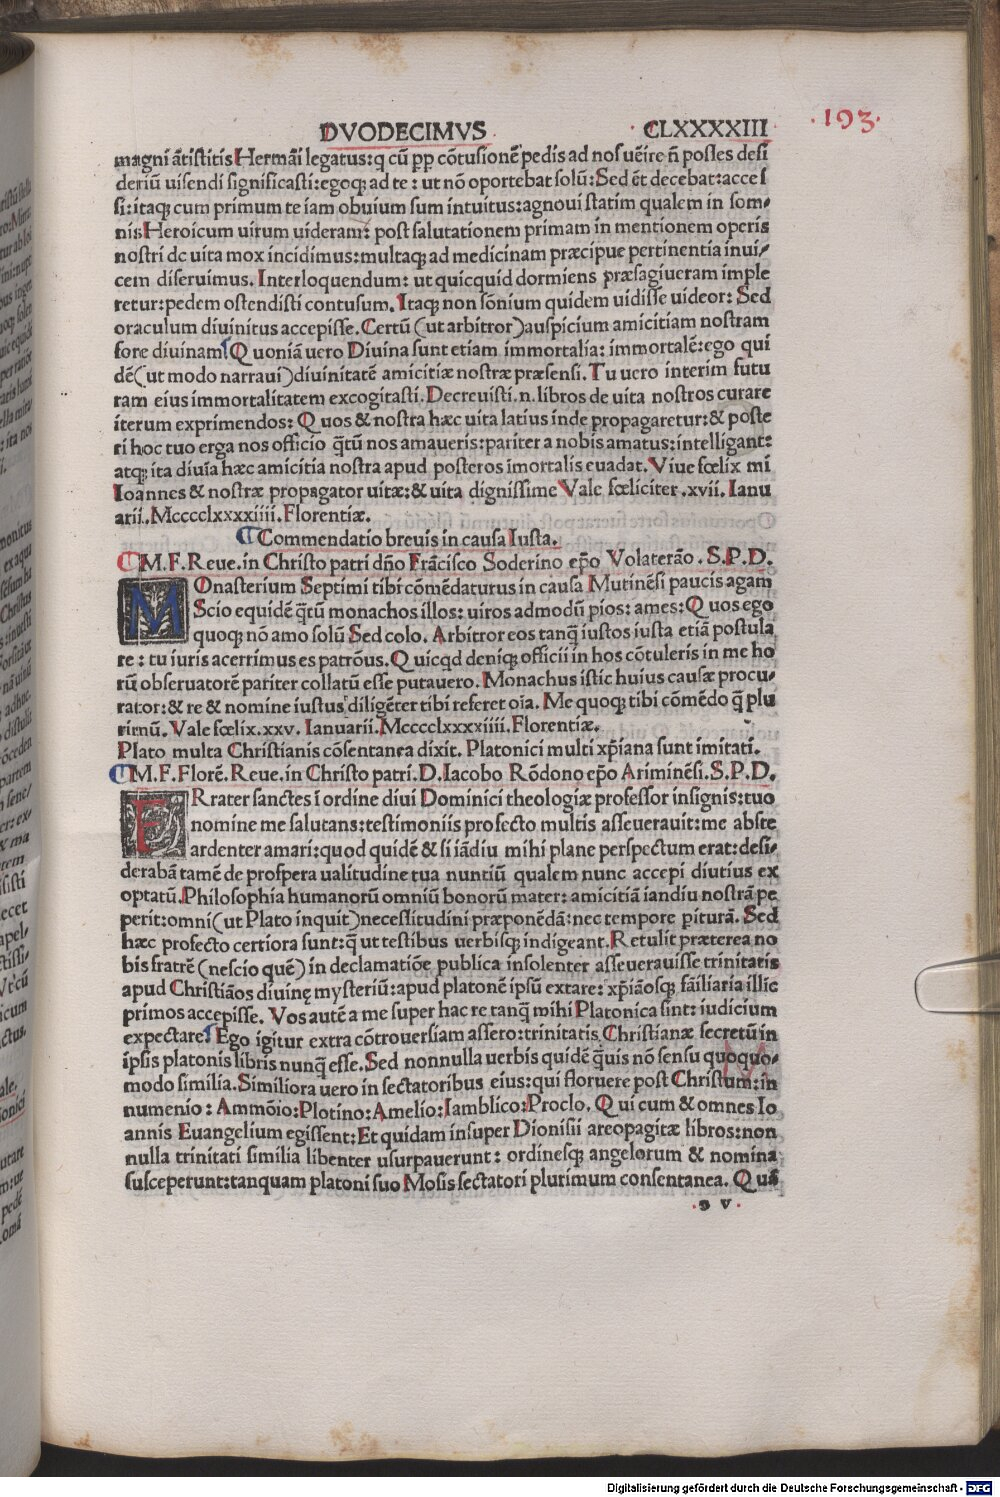 DVODECIMVS CLXXXXIII ·193·
magni ãtistitis Hermãi legatus:q cũ pp cõtusionẽ pedis ad nos uẽire ñ posses desi
deriũ uisendi significasti:egoq; ad te: ut nõ oportebat solũ:Sed ẽt decebat:acces
si:itaq; cum primum te iam obuium sum intuitus:agnoui statim qualem in som-
nis Heroicum uirum uideram: post salutationem primam in mentionem operis
nostri de uita mox incidimus:multaq; ad medicinam præcipue pertinentia inui-
cem diseruimus. Interloquendum: ut quicquid dormiens præsagiueram imple
retur:pedem ostendisti contusum. Itaq; non sõnium quidem uidisse uideor: Sed
oraculum diuinitus accepisse. Certũ (ut arbitror) auspicium amicitiam nostram
fore diuinam Quoniã uero Diuina sunt etiam immortalia: immortalẽ:ego qui
dẽ(ut modo narraui)diuinitatẽ amicitiæ nostræ præsensi. Tu uero interim futu
ram eius immortalitatem excogitasti. Decreuisti .n. libros de uita nostros curare
iterum exprimendos: Quos & nostra hæc uita latius inde propagaretur:& poste
ri hoc tuo erga nos officio q̃tũ nos amaueris:pariter a nobis amatus:intelligant:
atq; ita diuĩa hæc amicitia nostra apud posteros ĩmortalis euadat. Viue fœlix mi
Ioannes & nostræ propagator uitæ:& uita dignissime Vale fœliciter .xvii. Ianu
arii. Mcccclxxxxiiii. Florentiæ.
Commendatio breuis in causa Iusta.
M.F. Reue. in Christo patri dño Frãcisco Soderino ep̃o Volaterãο. S.P.D.
MOnasterium Septimi tibi cõmẽdaturus in causa Mutinẽsi paucis agam
Scio equidẽ q̃tũ monachos illos: uiros admodũ pios: ames: Quos ego
quoq; nõ amo solũ Sed colo. Arbitror eos tanq̃ iustos iusta etiã postula
re: tu iuris acerrimus es patrõus. Quicqd deniq; officii in hos cõtuleris in me ho
rũ obseruatorẽ pariter collatũ esse putauero. Monachus istic huius causæ procu-
rator:& re & nomine iustus diligẽter tibi referet oĩa. Me quoq; tibi cõmẽdo q̃ plu
rimũ. Vale fœlix. xxv. Ianuarii. Mcccclxxxxiiii. Florentiæ.
Plato multa Christianis cõsentanea dixit. Platonici multi xp̃iana sunt imitati.
M.F. Florẽ. Reue. in Christo patri. D. Iacobo Rõdono ep̃o Ariminẽsi. S.P.D.
FRrater sanctes ĩ ordine diui Dominici theologiæ professor insignis:tuo
nomine me salutans:testimoniis profecto multis asseuerauit:me abste
ardenter amari:quod quidẽ & si iãdiu mihi plane perspectum erat:desi-
derabã tamẽ de prospera ualitudine tua nuntiũ qualem nunc accepi diutius ex
optatũ. Philosophia humanorũ omniũ bonorũ mater: amicitiã iandiu nostrã pe
perit:omni (ut Plato inquit) necessitudini præponẽdã:nec tempore pituřã. Sed
hæc profecto certiora sunt:q̃ ut testibus uerbisq; indigeant. Retulit præterea no
bis fratrẽ (nescio quẽ) in declamatiõe publica insolenter asseuerauisse trinitatis
apud Christiãos diuinę mysteriũ:apud platonẽ ipsũ extare: xp̃iãosq; fãiliaria illic
primos accepisse. Vos autẽ a me super hac re tanq̃ mihi Platonica sint: iudicium
expectare Ego igitur extra cõtrouersiam assero:trinitatis Christianæ secretũ in
ipsis platonis libris nunq̃ esse. Sed nonnulla uerbis quidẽ q̃uis nõ sensu quoquo-
modo similia. Similiora uero in sectatoribus eius:qui floruere post Christum:in
numenio: Ammõio: Plotino: Amelio: Iamblico: Proclo. Qui cum & omnes Io
annis Euangelium egissent: Et quidam insuper Dionisii areopagitæ libros:non
nulla trinitati similia libenter usurpauerunt: ordinesq; angelorum & nomina
susceperunt:tanquam platoni suo Mosis sectatori plurimum consentanea. Quã
Digitalisierung gefördert durch die Deutsche Forschungsgemeinschaft - DFG